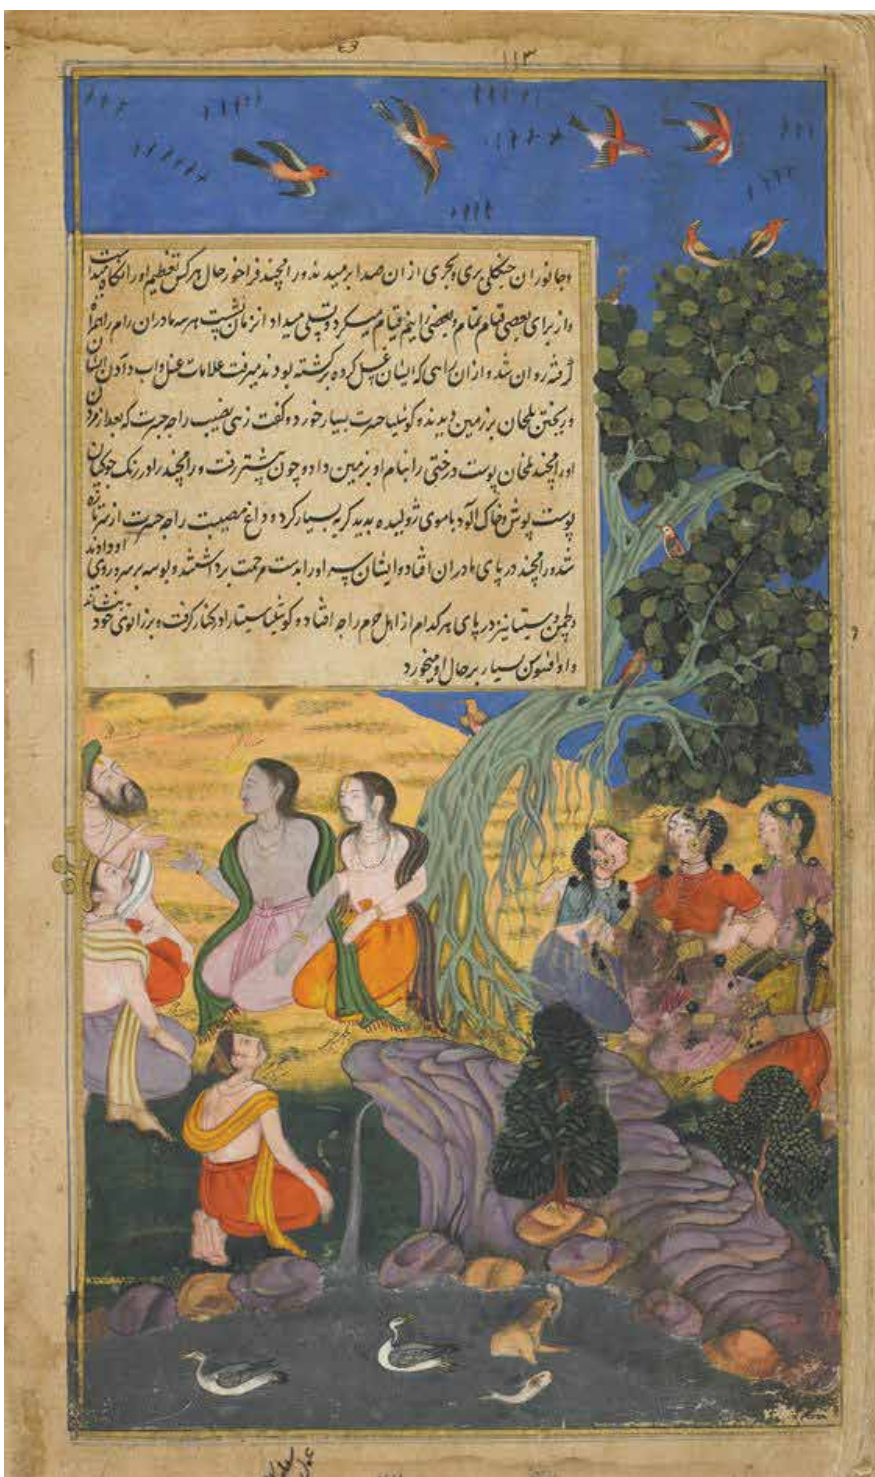 ۱۱۳
وجانوران جنگلی بری و بحری از ان صدا برمیدند ورامچند فراخور حال هرکس تعظیم اورا نگاه میداشت
واز برای بعضی قیام تمام و بعضی را نیم قیام میکرد و تسلی میداد انزمان بشت هرسه مادران رام را همراه
گرفته روان شد و ازان راهی که ایشان غسل کرده برگشته بودند میرفت علامات غسل و اب دادن ایشان
وریختن تلخان برزمین دیدند و کوشلیا حسرت بسیار خورد و گفت زهی نصیب راجه جسرت که بعد از مردن
اورامچند تلخان پوست درختی را بنام او بزمین داد و چون پیشتر رفت و رامچند را در رنک جوکیان
پوست پوش و خاک آلود با موی ژولیده بدید گریه بسیار کرد و داغ مصیبت راجه جسرت از سر تازه
شد ورامچند در پای مادران افتاد و ایشان سر اورا بدست مرحمت برداشتند و بوسه بر سر و روی او دادند
ولچمن و سیتا نیز در پای هر کدام از اهل حرم راجه افتاد و کوشلیا سیتا را در کنار گرفت و بر زانوی خود بنشاند
و افسوس بسیار بر حال او میخورد